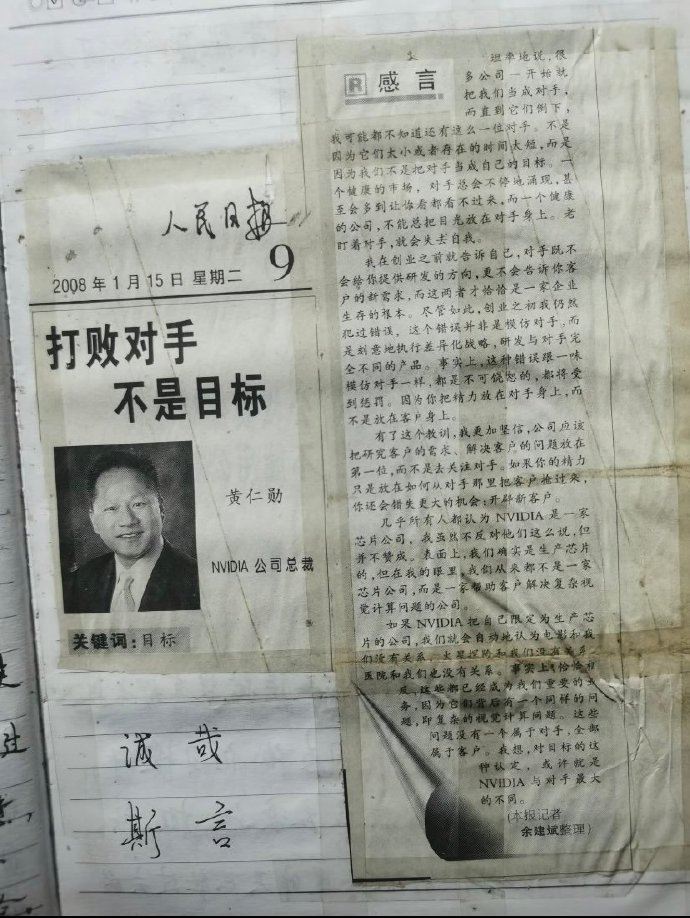 人民日报
9
2008年1月15日 星期二
打败对手
不是目标
黄仁勋
NVIDIA 公司总裁
关键词:目标
诚哉
斯言
R 感言
坦率地说,很
多公司一开始就
把我们当成对手,
而直到它们倒下,
我可能都不知道还有这么一位对手。不是
因为它们太小或者存在的时间太短,而是
因为我们不是把对手当成自己的目标。一
个健康的市场,对手总会不停地涌现,甚
至会多到让你看都看不过来,而一个健康
的公司,不能总把目光放在对手身上。老
盯着对手,就会失去自我。
我在创业之前就告诉自己,对手既不
会给你提供研发的方向,更不会告诉你客
户的新需求,而这两者才恰恰是一家企业
生存的根本。尽管如此,创业之初我仍然
犯过错误,这个错误并非是模仿对手,而
是刻意地执行差异化战略,研发与对手完
全不同的产品。事实上,这种错误跟一味
模仿对手一样,都是不可饶恕的,都将受
到惩罚。因为你把精力放在对手身上,而
不是放在客户身上。
有了这个教训,我更加坚信,公司应该
把研究客户的需求、解决客户的问题放在
第一位,而不是去关注对手。如果你的精力
只是放在如何从对手那里把客户抢过来,
你还会错失更大的机会:开辟新客户。
几乎所有人都认为 NVIDIA 是一家
芯片公司,我虽然不反对他们这么说,但
并不赞成。表面上,我们确实是生产芯片
的,但在我的眼里,我们从来都不是一家
芯片公司,而是一家帮助客户解决复杂视
觉计算问题的公司。
如果 NVIDIA 把自己限定为生产芯
片的公司,我们就会自动地认为电影和我
们没有关系、火星探险和我们没有关系、
医院和我们也没有关系。事实上,恰恰相
反,这些都已经成为我们重要的业
务,因为它们背后有一个同样的问
题,即复杂的视觉计算问题。这些
问题没有一个属于对手,全部
属于客户。我想,对目标的这
种认定,或许就是
NVIDIA 与对手最大
的不同。
(本报记者
余建斌整理)